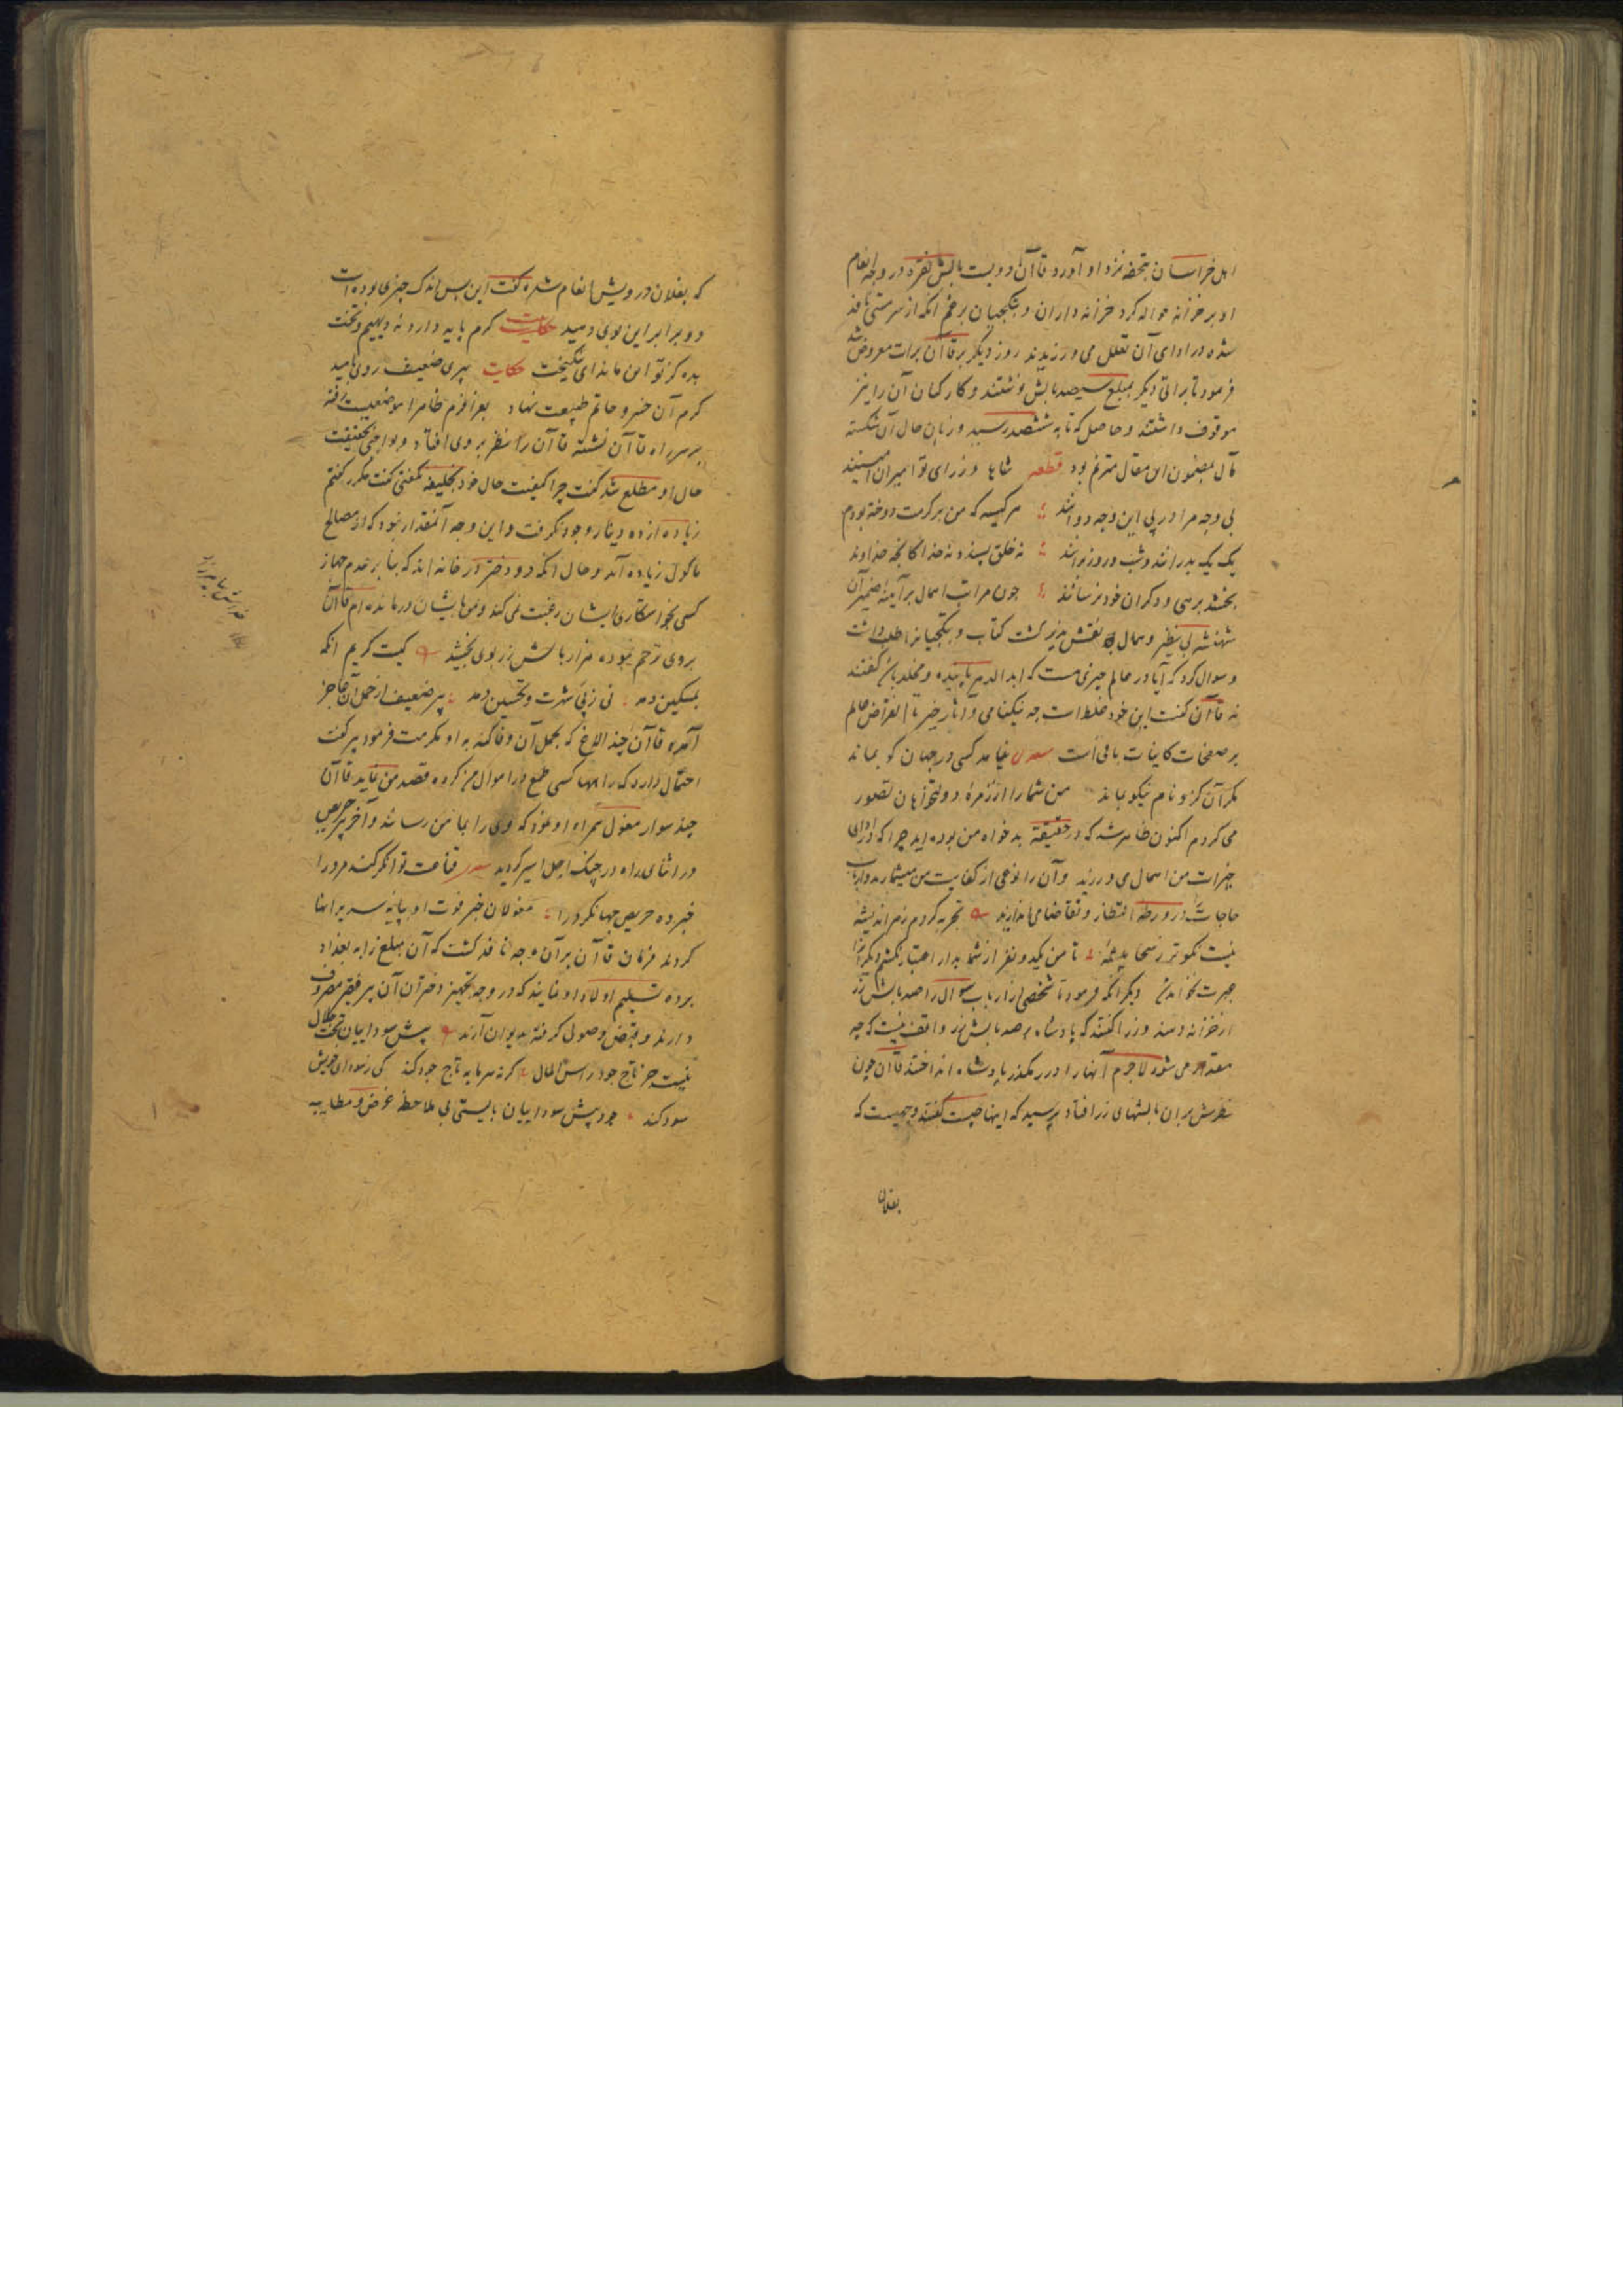 اهل خراسان بتحفه نزد او آورد قاآن دویست بالش نقره در وجه انعام
او بر خزانه حواله کرد خزانه داران و بتکچیان برغم انکه از سر مستی نافذ
شده در ادای آن تعلل می ورزیدند روز دیگر بر قاآن برات معروض شد
فرمود تا براتی دیگر بمبلغ سیصد بالش نوشتند و کارکنان آن را نیز
موقوف داشتند و حاصل که تا به ششصد رسید و زبان حال آن شکسته
بال بمضمون این مقال مترنم بود قطعه شاها وزرای تو امیران
بی وجه مرا در پی این وجه دوانند هر کیسه که من بر کرمت دوخته بودم
یک یک بدرانند و شب و روز برانند نه خلق پسندد نه خدا کانچه خداوند
بخشد برهی و دکران خود نرسانند چون مراتب اهمال بر آینه ضمیر آن
شهنشه بی نظیر و همال نقش پذیر گشت کتاب و بتکچیانرا طلب داشت
و سوال کرد که آیا در عالم چیزی هست که ابد الدهر پاینده و مخلد باشد گفتند
نه قاآن گفت این خود غلط است چه نیکنامی و آثار خیر تا انقراض عالم
بر صفحات کاینات باقی است نیامد کسی در جهان کو بماند
مگر آن کزو نام نیکو بماند من شما را از زمره دولتخواهان تصور
می کردم اکنون ظاهر شد که در حقیقة بدخواه من بوده اید چرا که در ادای
خیرات من اهمال می ورزید و آن را نوعی از کفایت من میشمارید و ارباب
حاجات در ورطه انتظار و تقاضا می اندازید تجربه کردم زهر اندیشه
نیست نکوتر ز سخا پیشه تا من یکد و نفر از شما بدار اعتبار نکشم دیگرانرا
عبرت نخواهد شد دیگر انکه فرمود تا شخصی از ارباب سوال را صد بالش زر
از خزانه دهند وزرا گفتند که پادشاه بر صد بالش زر واقف نیست که چه
مقدار می شود لاجرم آنها را در رهگذر پادشاه انداختند قاآن چون
نظرش بر ان بالشهای زر افتاد پرسید که اینها چیست گفتند وجهیست که
بفلان
که بفلان درویش انعام شده گفت این بس اندک چیزی بوده است
دو برابر این بوی دهید حکایت کرم پایه دارد نه دیهیم و تخت
بده کز تو این ماند ای نیکبخت حکایت پیری ضعیف روی بامید
کرم آن خسرو حاتم طبیعت نهاد بعد از عزم ظاهرا موضعیست رفته
بر سر راه قاآن نشسته قاآن را نظر بر وی افتاد و بواجبی بحقیقت
حال او مطلع شد گفت چرا کیفیت حال خود بخلیفه نگفتی گفت مکرر گفتم
زیاده از ده دینار وجود نگرفت و این وجه آنمقدار نبود که از مصالح
ماکول زیاده آید و حال انکه دو دختر در خانه اند که بنا بر عدم جهاز
کسی بخواستکاری ایشان رغبت نمی کند و من بایشان درمانده ام قاآن
بر وی ترحم نموده هزار بالش زر بوی بخشید کیست کریم انکه
بمسکین دهد نی ز پی شهرت و تحسین دهد پیر ضعیف از حمل آن عاجز
آمده قاآن چند الاغ که بحمل آن وفا کند به او مکرمت فرمود پیر گفت
احتمال دارد که در راهها کسی طمع در اموال من کرده قصد من نماید قاآن
چند سوار مغول همراه او نمود که وی را بمامن رسانند و آخر پیر حریص
در اثنای راه در چنگ اجل اسیر گردید قناعت توانگر کند مرد را
خبر ده حریص جهانگرد را مغولان خبر فوت او بپایه سریر انها
کردند فرمان قاآن بر آن وجه نافذ گشت که آن مبلغ را به بغداد
برده تسلیم اولاد او نمایند که در وجه تجهیز دختران آن پیر فقیر مصروف
دارند و قبض وصولی گرفته بدیوان آرند پیش سوداییان تخت جلال
نیست جز تاج جود راس المال گر نه سرمایه تاج جود کند کی ز سودای خویش
سود کند جود پیش سوداییان بایستی بی ملاحظه غرض و مطایبه